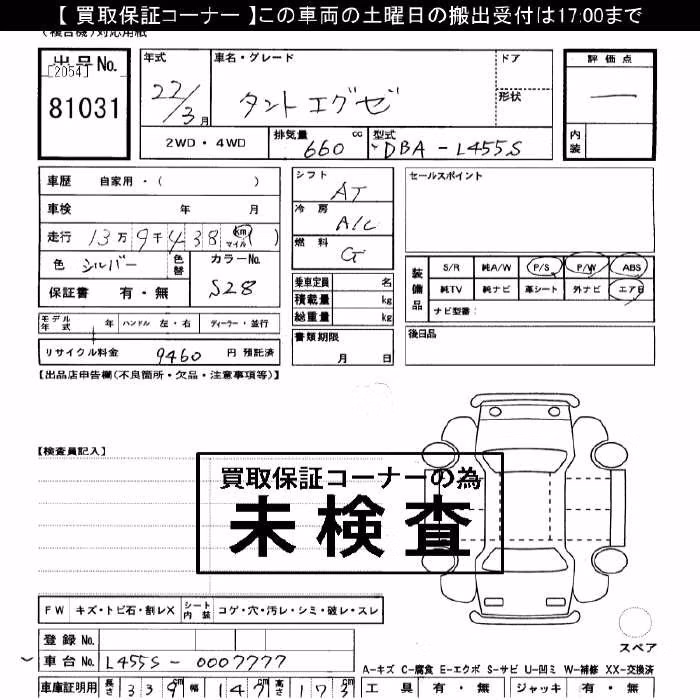 【 買取保証コーナー 】この車両の土曜日の搬出受付は17:00まで
(複合機)対応用紙
出品No.
[2054]
81031
年式 22/3月
車名・グレード タントエグゼ
ドア
形状
評価点
—
内装
2WD・4WD
排気量 660 cc
型式 DBA-L455S
車歴 自家用・( )
車検 年 月
走行 13万9千438 km マイル ( )
色 シルバー 色替
カラーNo. S28
保証書 有・無
シフト AT
冷房 A/C
燃料 G
乗車定員 名
積載量 kg
総重量 kg
書類期限
月 日
セールスポイント
装備品
S/R 純A/W P/S P/W ABS
純TV 純ナビ 革シート 外ナビ エアB
ナビ型番:
後日品
モデル年式 年 ハンドル 左・右 ディーラー・並行
リサイクル料金 9460 円 預託済
【出品店申告欄(不良箇所・欠品・注意事項等)】
【検査員記入】
買取保証コーナーの為
未検査
FW キズ・トビ石・割レX シート内装 コゲ・穴・汚レ・シミ・破レ・スレ
登録No.
車台No. L455S-0007777
スペア
A-キズ C-腐食 E-エクボ S-サビ U-凹ミ W-補修 XX-交換済
車庫証明用 長さ 339cm 幅 147cm 高さ 173cm
工具 有・無 ジャッキ 有・無